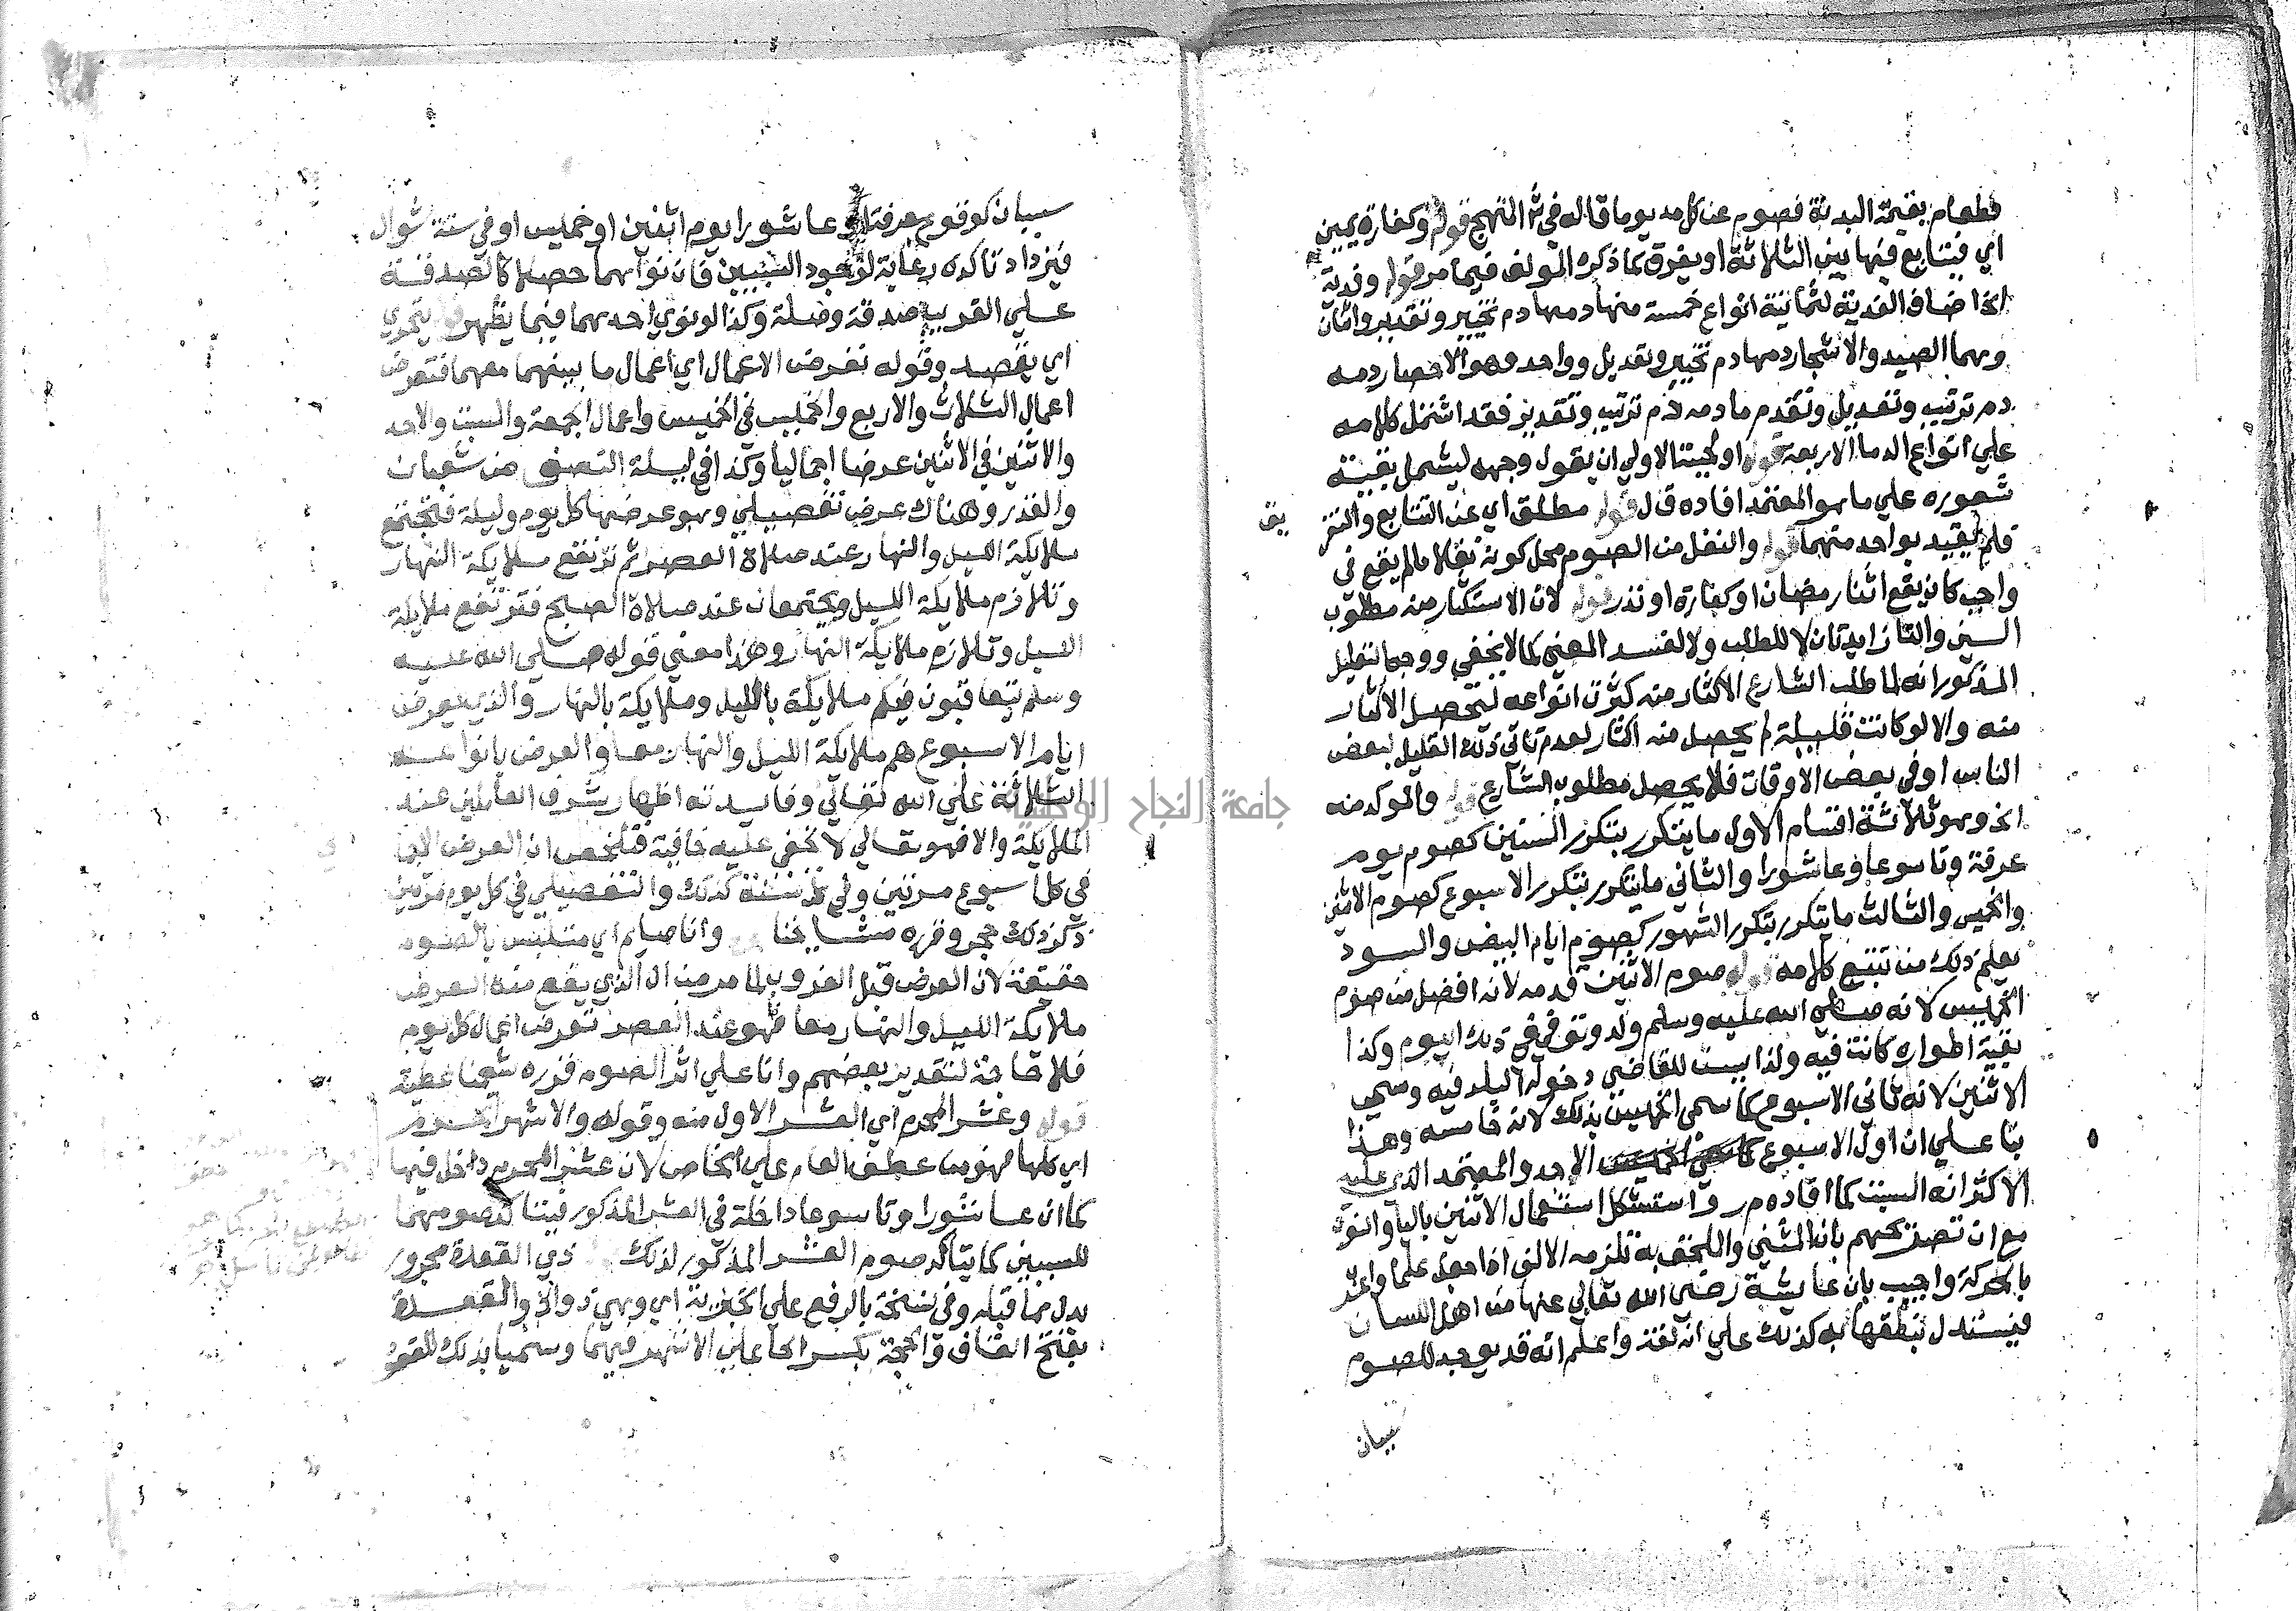 فطعام بقيمة البدنة فصوم عن كل مد يوما قاله في ش المنهج قوله وكفارة يمين
اي فيتابع فيها بين الثلاثة او يفرق كما ذكره المولف فيما مر قوله وفدية
الخ اضاف الفدية لثمانية انواع خمسة منها دمها دم تخيير وتقدير واثنان
وهما الصيد والاشجار دمها دم تخيير وتعديل وواحد وهو الاحصار دمه
دم ترتيب وتعديل وتقدم ما دمه دم ترتيب وتقدير فقد اشتمل كلامه
علي انواع الدما الاربعة قوله او لحيتنا الاولي ان يقول وجهه ليشمل بقية
شعوره علي ما هو المعتمد افاده ق ل قوله مطلق اي عن التتابع والتفر
يق
فلم يقيد بواحد منهما قوله والنفل من الصوم محل كونه نفلا ما لم يقع في
واجب كان يقع اثنا رمضان او كفارة او نذر قوله لان الاستكثار منه مطلوب
السين والتا زايدتان لا للطلب ولا لفسد المعني كما لا يخفي ووجه التعليل
المذكور انه لما طلب الشارع الاكثار منه كثرت انواعه ليحصل الاكثار
منه والا لو كانت قليلة لم يحصل منه اكثار لعدم تاتي ذلك القليل لبعض
الناس او في بعض الاوقات فلا يحصل مطلوب الشارع قوله والموكد منه
الخ وهو ثلاثة اقسام الاول ما يتكرر بتكرر السنين كصوم يوم
عرفة وتاسوعا وعاشورا والثاني ما يتكرر بتكرر الاسبوع كصوم الاثنين
والخميس والثالث ما يتكرر بتكرر الشهور كصوم ايام البيض والسود
يعلم ذلك من تتبع كلامه قوله صوم الاثنين قدمه لانه افضل من صوم
الخميس لانه صلي الله عليه وسلم ولد وتوفي في ذلك اليوم وكذا
بقية اطواره كانت فيه ولذا يسن للقاضي دخوله البلد فيه وسمي
الاثنين لانه ثاني الاسبوع كما سمي الخميس بذلك لانه خامسه وهذا
بنا علي ان اول الاسبوع الاحد والمعتمد الذي عليه
الاكثر انه السبت كما افاده م ر واستشكل استعمال الاثنين باليا والنون
مع ان تصريحهم بان المثني والملحق به تلزمه الالف اذا جعل علما واعرب
بالحركة واجيب بان عايشة رضي الله تعالي عنها من اهل اللسان
فيستدل بنطقها به كذلك علي انه لغة واعلم انه قد يوجد للصوم
سببان
سببان كوقوع عرفة او عاشورا يوم اثنين او خميس او في ستة شوال
فيزداد تاكده رعاية لوجود السببين فان نواهما حصلا كالصدقة
علي القريب صدقة وصلة وكذا لو نوي احدهما فيما يظهر قوله يتحري
اي يقصد وقوله تعرض الاعمال اي اعمال ما بينهما معهما فتعرض
اعمال الثلاث والاربع والخميس في الخميس واعمال الجمعة والسبت والاحد
والاثنين في الاثنين عرضا اجماليا وكذا في ليلة النصف من شعبان
والقدر وهناك عرض تفصيلي وهو عرضها كل يوم وليلة فتجتمع
ملايكة الليل والنهار عند صلاة العصر ثم ترتفع ملايكة النهار
وتلازم ملايكة الليل ويجتمعان عند صلاة الصبح فترتفع ملايكة
الليل وتلازم ملايكة النهار وهذا معني قوله صلي الله عليه
وسلم يتعاقبون فيكم ملايكة بالليل وملايكة بالنهار والذي يعرض
ايام الاسبوع هم ملايكة الليل والنهار معا والعرض بانواعه
الثلاثة علي الله تعالي وفايدته اظهار شرف العاملين عند
الملايكة والا فهو تعالي لا تخفي عليه خافية فتلخص ان العرض الاجما
في كل اسبوع مرتين وفي كل سنة كذلك والتفصيلي في كل يوم مرتين
ذكر ذلك حجر وقرره مشايخنا قوله وانا صايم اي متلبس بالصوم
حقيقة لان العرض قبل الغروب لما مر من ان الذي يقع منه العرض
ملايكة الليل والنهار معا فهو عند العصر تعرض اعمال كل يوم
فلا حاجة لتقدير بعضهم وانا علي اثر الصوم قرره شيخنا عطية
قوله وعشر المحرم اي العشر الاول منه وقوله والاشهر الحرم
اي كلها فهو من عطف العام علي الخاص لان عشر المحرم داخل فيها
كما ان عاشورا وتاسوعا داخلة في العشر المذكور فيتاكد صومهما
للسببين كما يتاكد صوم العشر المذكور لذلك قوله ذي القعدة مجرور
بدل مما قبله وفي نسخة بالرفع علي الخبرية اي وهي ذو الخ والقعدة
بفتح القاف والحجة بكسر الحا علي الاشهر فيهما وسميا بذلك للقعود
جامعة النجاح الوطنية